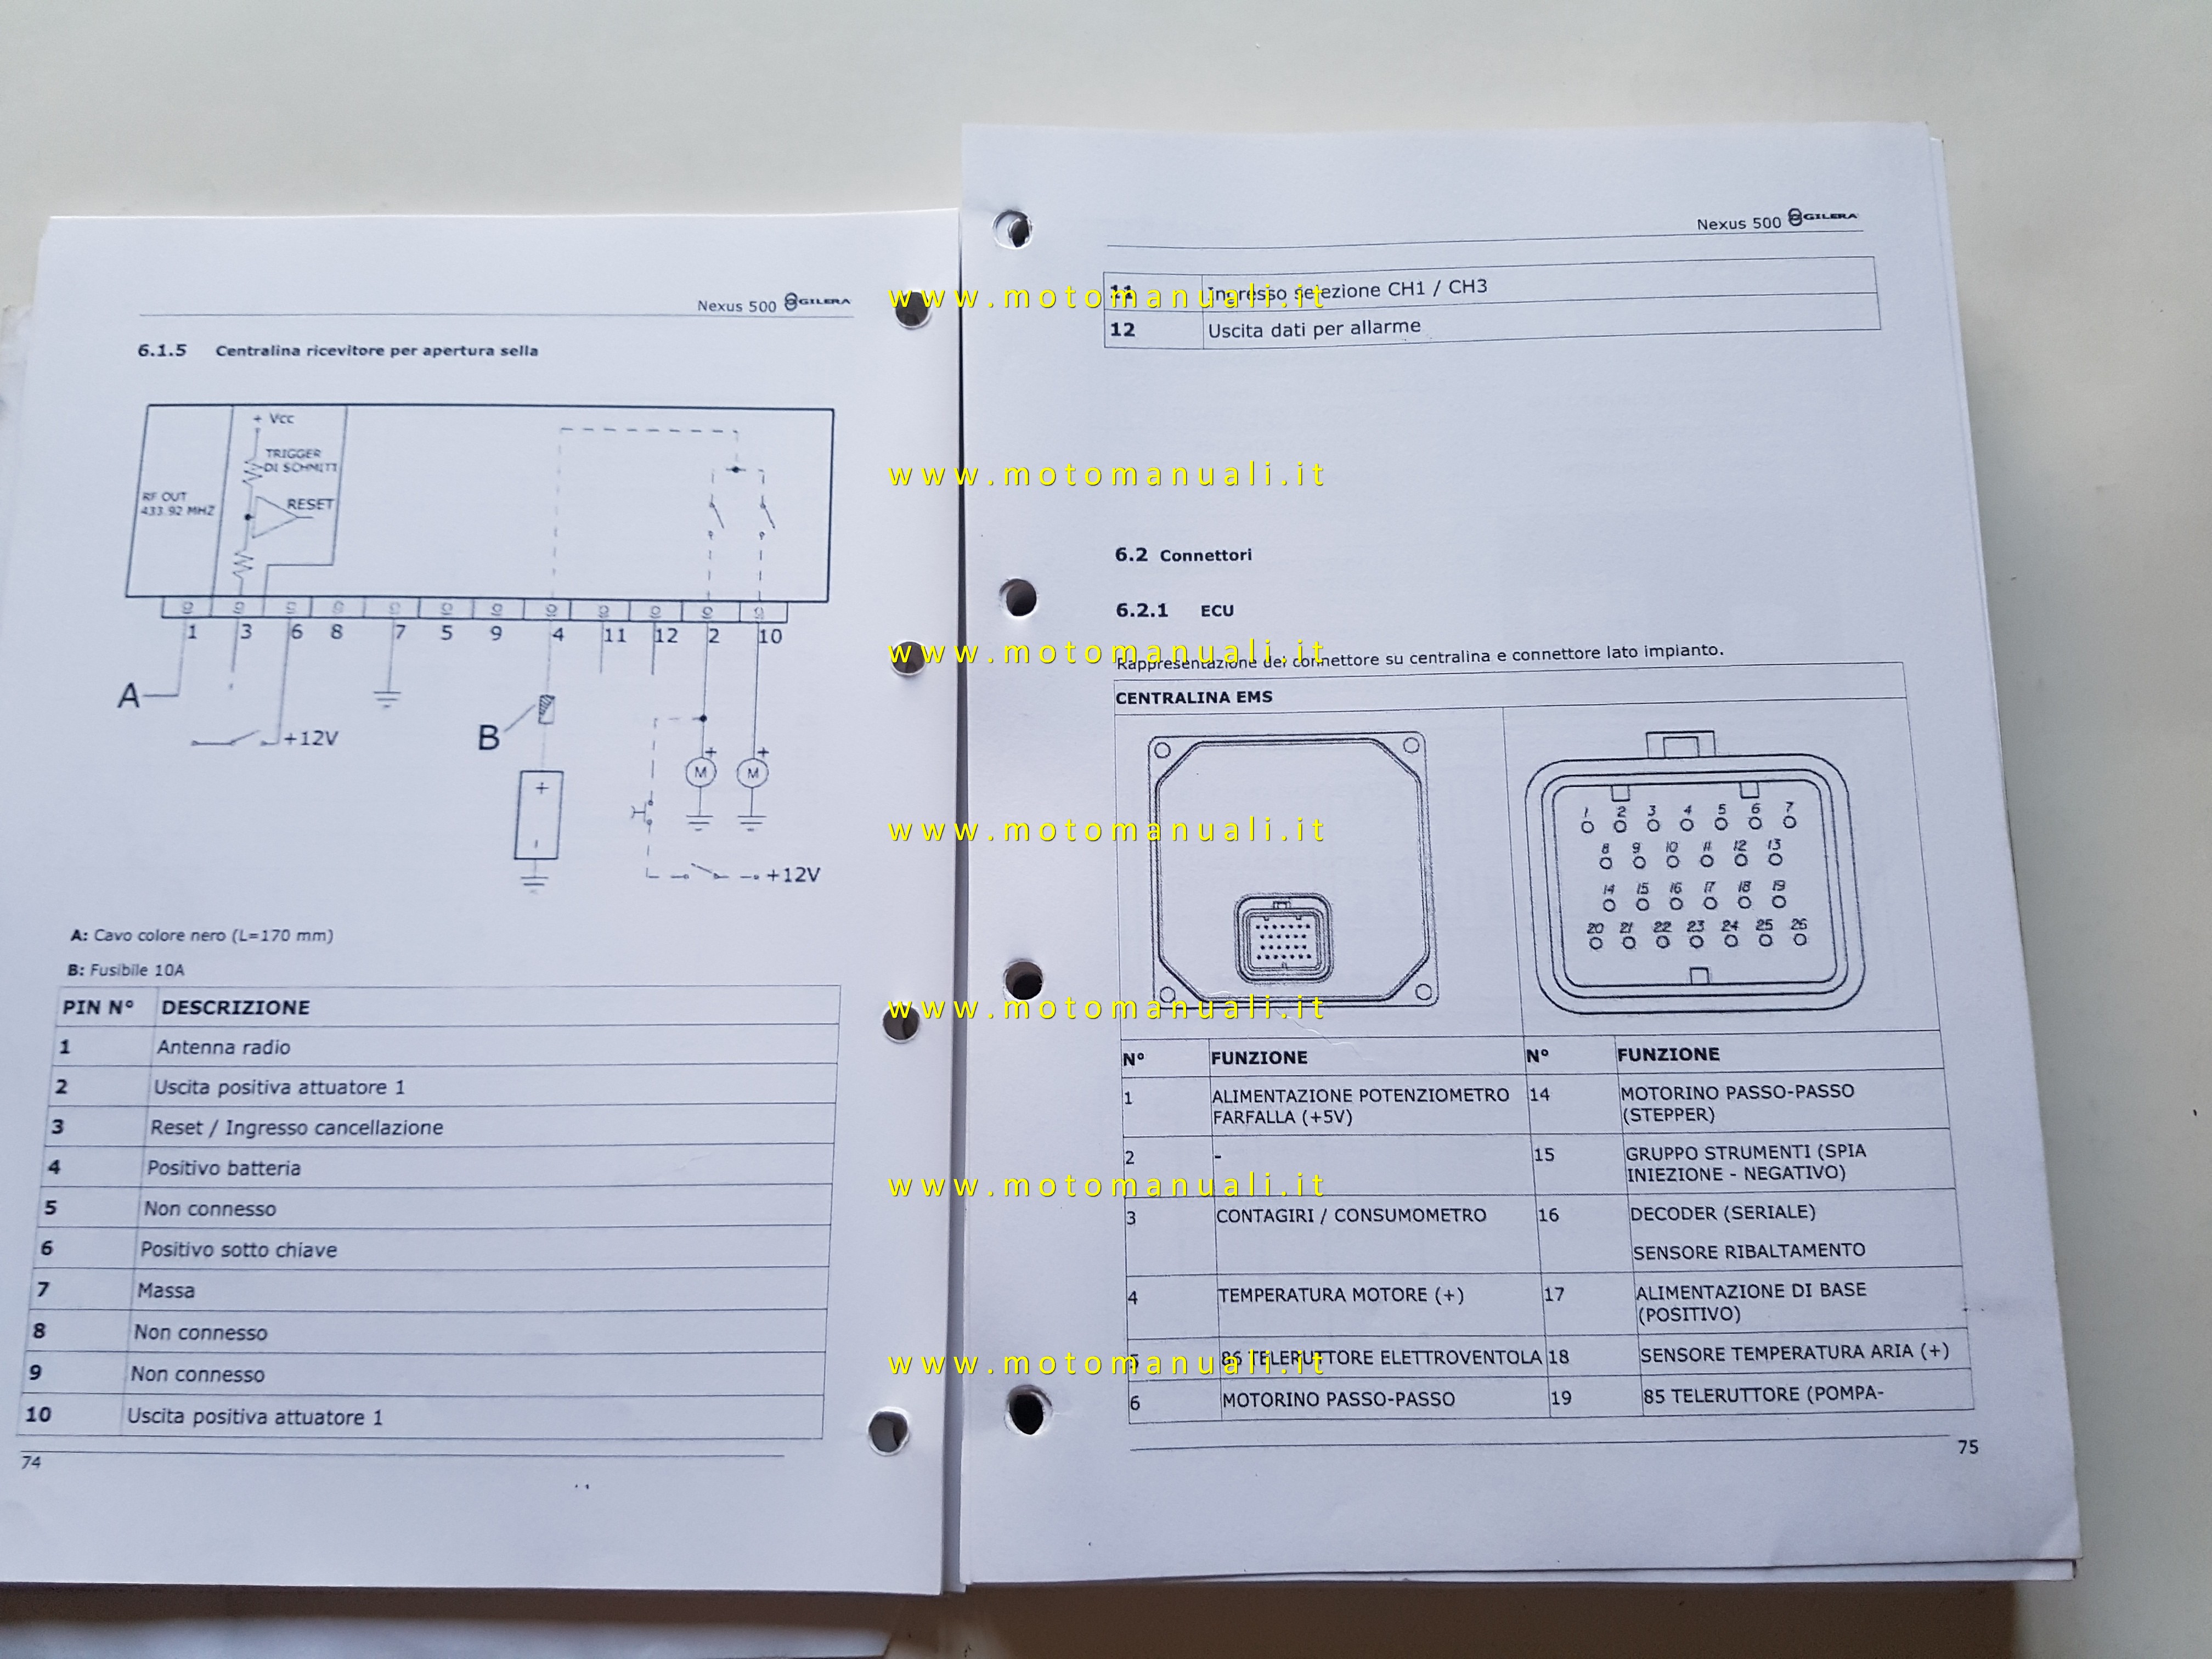 Nexus 500 GILERA
6.1.5 Centralina ricevitore per apertura sella
+ Vcc
TRIGGER
DI SCHMITT
RESET
RF OUT
433.92 MHZ
1 3 6 8 7 5 9 4 11 12 2 10
A
+12V
B
+
-
+ +
M M
+12V
A: Cavo colore nero (L=170 mm)
B: Fusibile 10A
PIN N° DESCRIZIONE
1 Antenna radio
2 Uscita positiva attuatore 1
3 Reset / Ingresso cancellazione
4 Positivo batteria
5 Non connesso
6 Positivo sotto chiave
7 Massa
8 Non connesso
9 Non connesso
10 Uscita positiva attuatore 1
74
Nexus 500 GILERA
11 Ingresso selezione CH1 / CH3
12 Uscita dati per allarme
6.2 Connettori
6.2.1 ECU
Rappresentazione del connettore su centralina e connettore lato impianto.
CENTRALINA EMS
1 2 3 4 5 6 7
8 9 10 11 12 13
14 15 16 17 18 19
20 21 22 23 24 25 26
N° FUNZIONE N° FUNZIONE
1 ALIMENTAZIONE POTENZIOMETRO 14 MOTORINO PASSO-PASSO
FARFALLA (+5V) (STEPPER)
2 - 15 GRUPPO STRUMENTI (SPIA
INIEZIONE - NEGATIVO)
3 CONTAGIRI / CONSUMOMETRO 16 DECODER (SERIALE)
SENSORE RIBALTAMENTO
4 TEMPERATURA MOTORE (+) 17 ALIMENTAZIONE DI BASE
(POSITIVO)
5 86 TELERUTTORE ELETTROVENTOLA 18 SENSORE TEMPERATURA ARIA (+)
6 MOTORINO PASSO-PASSO 19 85 TELERUTTORE (POMPA-
75
www.motomanuali.it
www.motomanuali.it
www.motomanuali.it
www.motomanuali.it
www.motomanuali.it
www.motomanuali.it
www.motomanuali.it